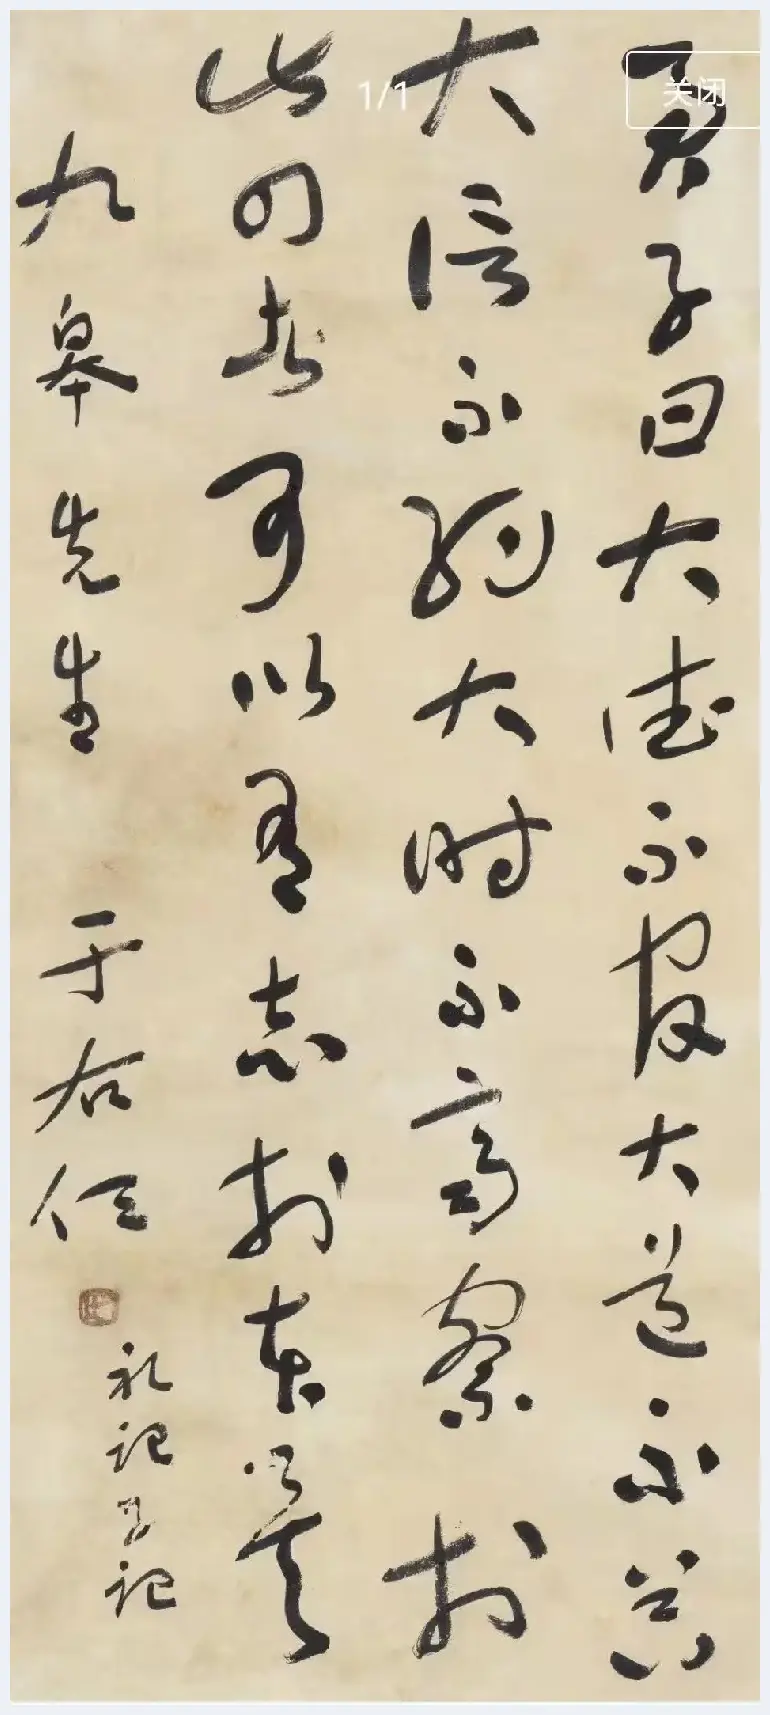 君子曰大德不官大道不器
大信不約大时不齊察於
此四者可以有志於本矣
九皋先生 于右任
礼記學記
1/1
关闭